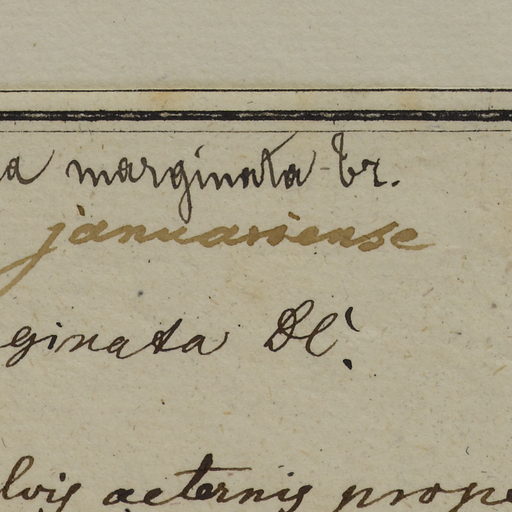 a marginata Br.
januariense
ginata DC.
lvis aeternis prope